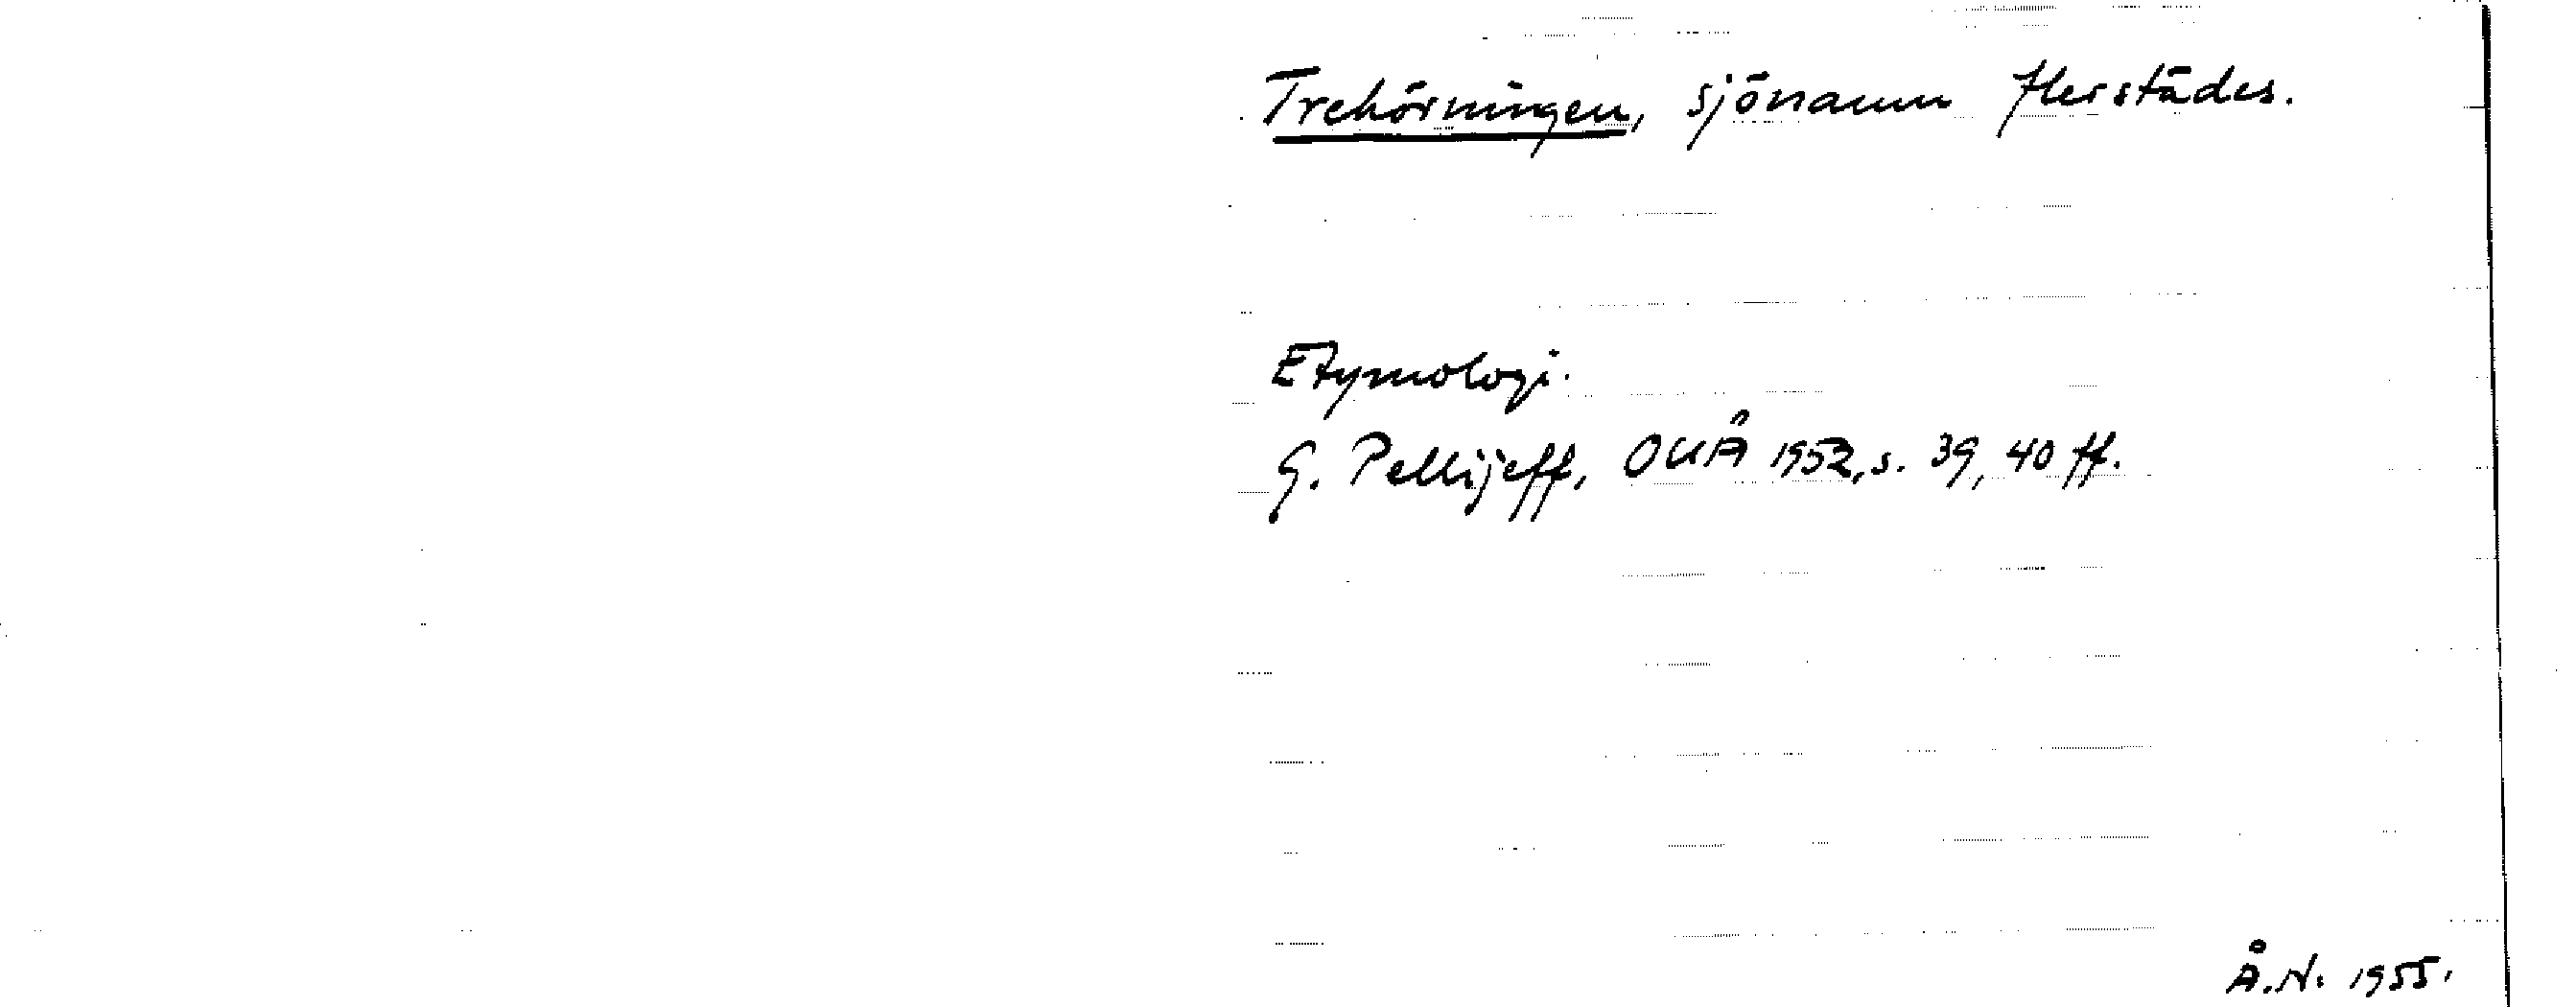 Trehörningen, sjönamn flerstädes.
Etymologi.
G. Pellijeff, OUÅ 1952, s. 39, 40 ff.
Å.N. 1955.